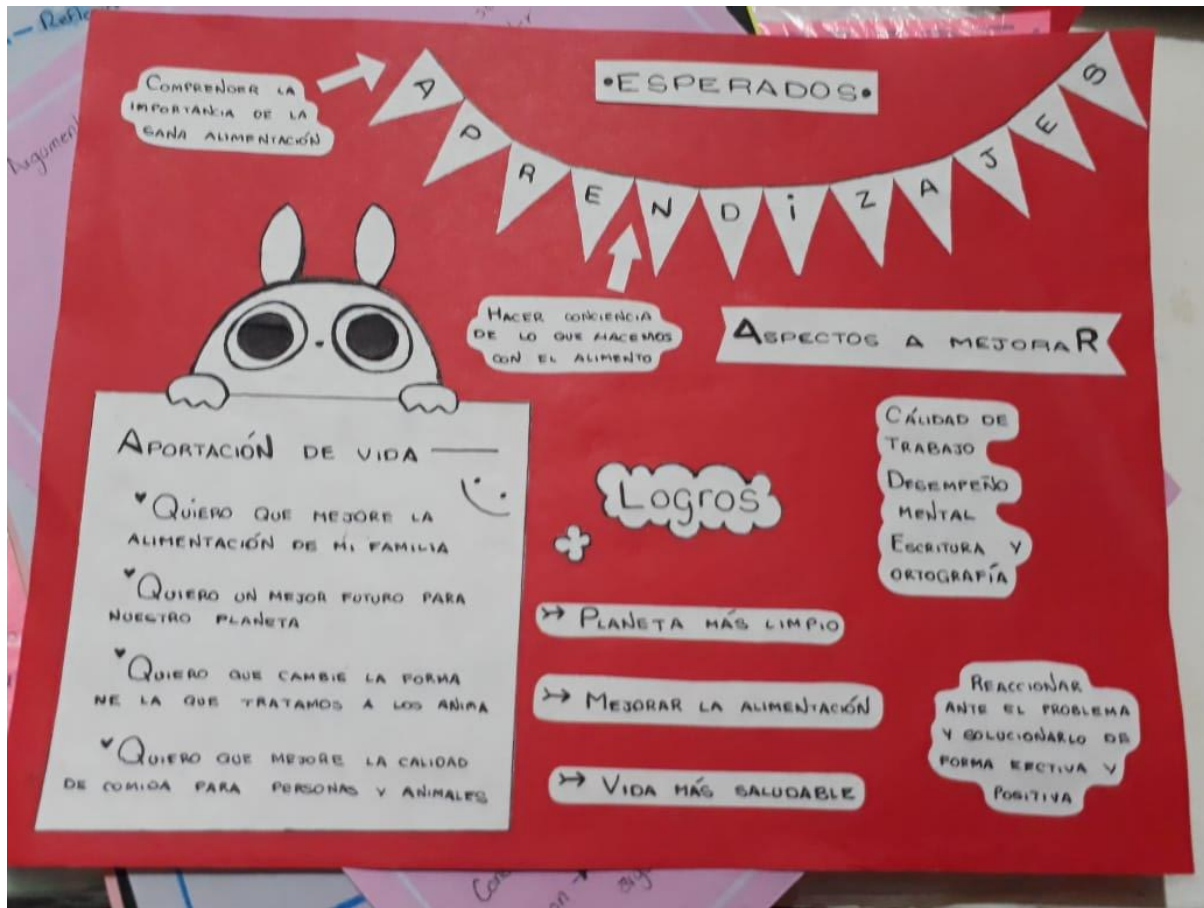 Reflex
Argumen
COMPRENDER LA
IMPORTANCIA DE LA
SANA ALIMENTACIÓN
APRENDiZAJES
•ESPERADOS•
HACER CONCIENCIA
DE LO QUE HACEMOS
CON EL ALIMENTO
ASPECTOS A MEJORAR
CÁLIDAD DE
TRABAJO
DESEMPEÑO
MENTAL
ESCRITURA Y
ORTOGRAFÍA
REACCIONAR
ANTE EL PROBLEMA
Y SOLUCIONARLO DE
FORMA EFECTIVA Y
POSITIVA
APORTACIÓN DE VIDA
QUIERO QUE MEJORE LA
ALIMENTACIÓN DE MI FAMILIA
QUIERO UN MEJOR FUTURO PARA
NUESTRO PLANETA
QUIERO QUE CAMBIE LA FORMA
NE LA QUE TRATAMOS A LOS ANIMA
QUIERO QUE MEJORE LA CALIDAD
DE COMIDA PARA PERSONAS Y ANIMALES
Logros
PLANETA MÁS LIMPIO
MEJORAR LA ALIMENTACIÓN
VIDA MÁS SALUDABLE